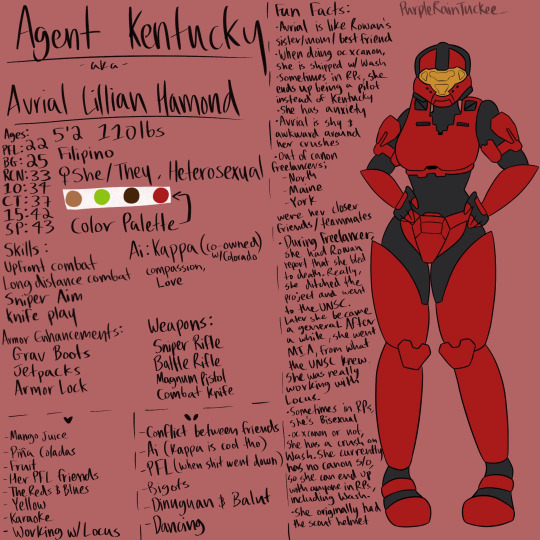 Agent Kentucky
- aka -
Avrial Lillian Hamond
Ages:
PFL: 22
BG: 25
RCN: 33
10: 34
CT: 37
15: 42
SP: 43
5'2 110lbs
Filipino
♀She/They, Heterosexual
Color Palette
Skills:
Upfront combat
Long distance combat
Sniper Aim
Knife play
Ai: Kappa (co-owned)
w/Colorado
compassion,
Love
Armor Enhancements:
Grav Boots
Jetpacks
Armor Lock
Weapons:
Sniper Rifle
Battle Rifle
Magnum Pistol
Combat Knife
-Mango Juice
-Piña Coladas
-Fruit
-Her PFL friends
-The Reds & Blues
-Yellow
-Karaoke
-Working w/Locus
-Conflict between friends
-Ai (Kappa is cool tho)
-PFL (when shit went down)
-Bigots
-Dinuguan & Balut
-Dancing
Fun Facts:
-Avrial is like Rowan's
sister/mom/best friend
-When doing ocxcanon,
she is shipped w/ Wash
Sometimes in RPs, she
ends up being a pilot
instead of Kentucky
-She has anxiety
-Avrial is shy &
awkward around
her crushes
-Out of canon
freelancers;
-North
-Maine
-York
were her closer
friends/teammates
-During Freelancer,
she had Rowan
report that she bled
to death. Really,
she ditched the
project and went
to the UNSC.
Later she became
a general. After
a while, she went
MIA, from what
the UNSC knew
She was really
working with
Locus.
-Sometimes in RPs,
she's Bisexual
-ocxcanon or not,
she has a crush on
Wash. She currently
has no canon s/o,
so she can end up
with anyone in RPs,
including Wash.
-She originally had
the scout helmet
PurpleRainTuckee